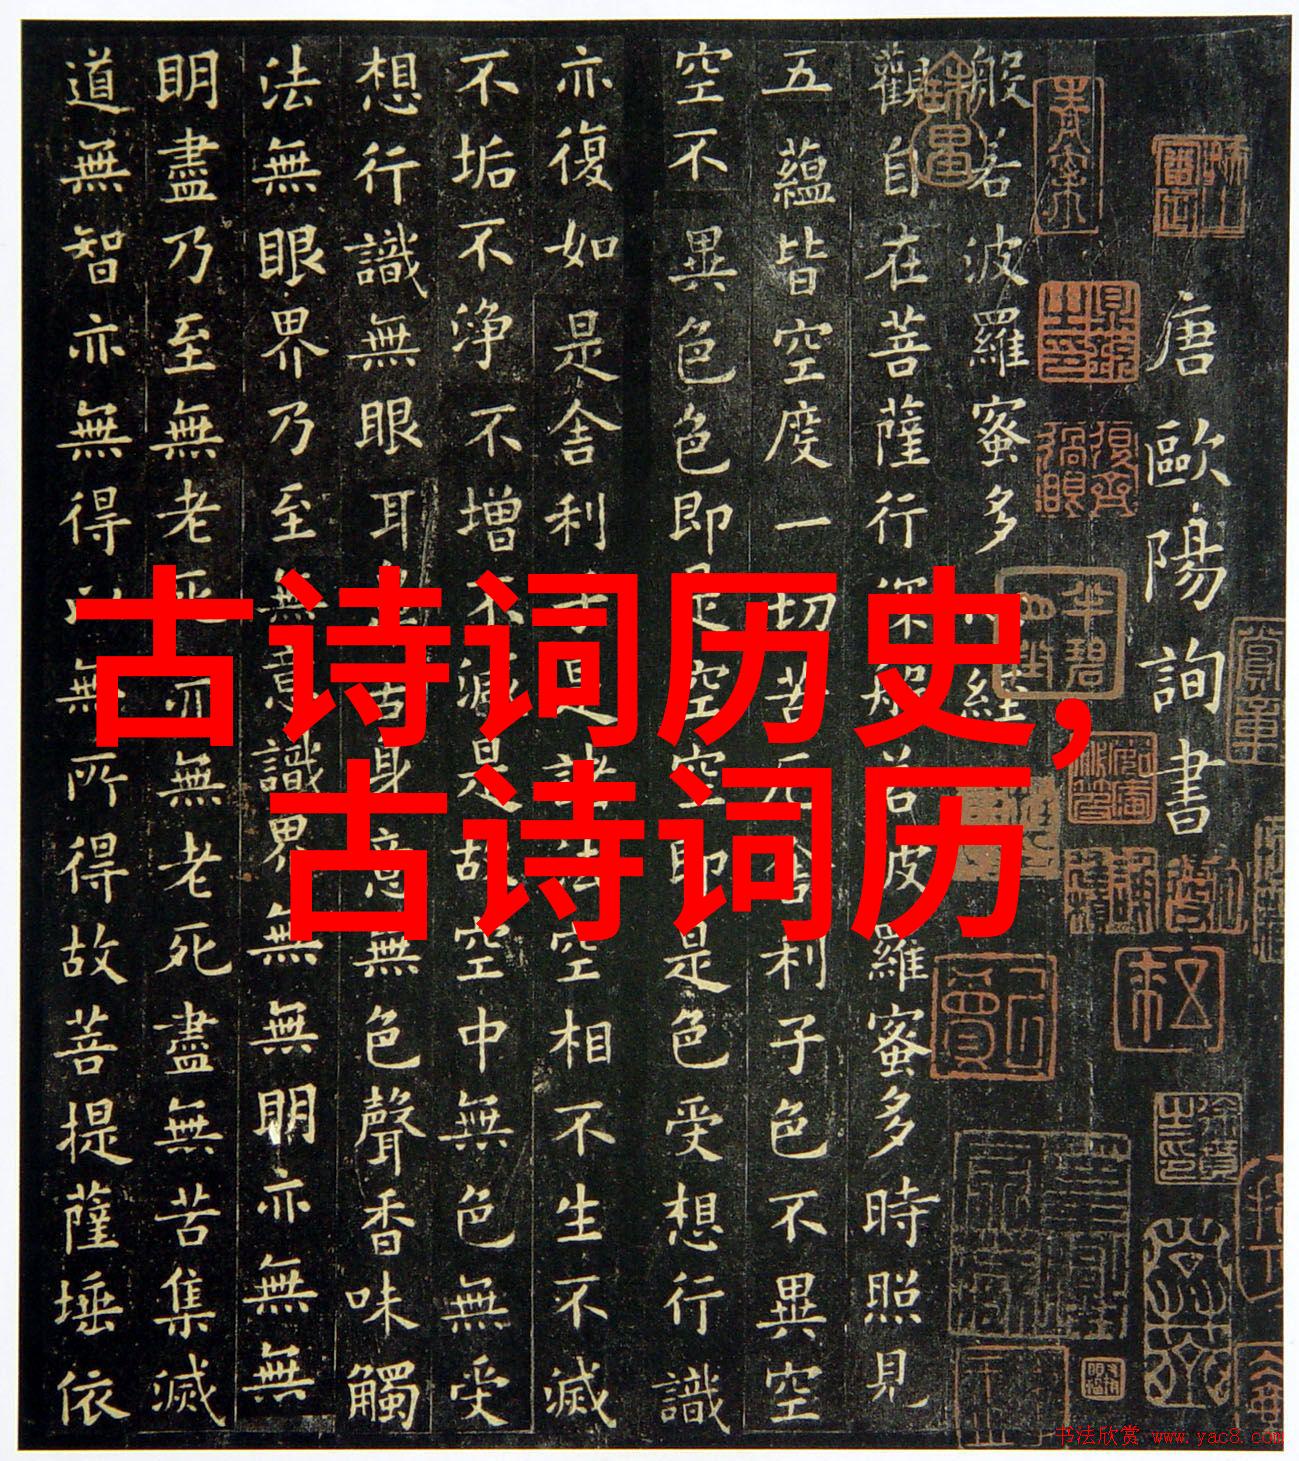 唐歐陽詢書
般若波羅蜜多心經
觀自在菩薩行深般若波羅蜜多時照見
五蘊皆空度一切苦厄舍利子色不異空
空不異色色即是空空即是色受想行識
亦復如是舍利子是諸法空相不生不滅
不垢不淨不增不減是故空中無色無受
想行識無眼耳鼻舌身意無色聲香味觸
法無眼界乃至無意識界無無明亦無無
明盡乃至無老死亦無老死盡無苦集滅
道無智亦無得以無所得故菩提薩埵依
古诗词历史,
古诗词历
书法欣赏 www.yac8.com